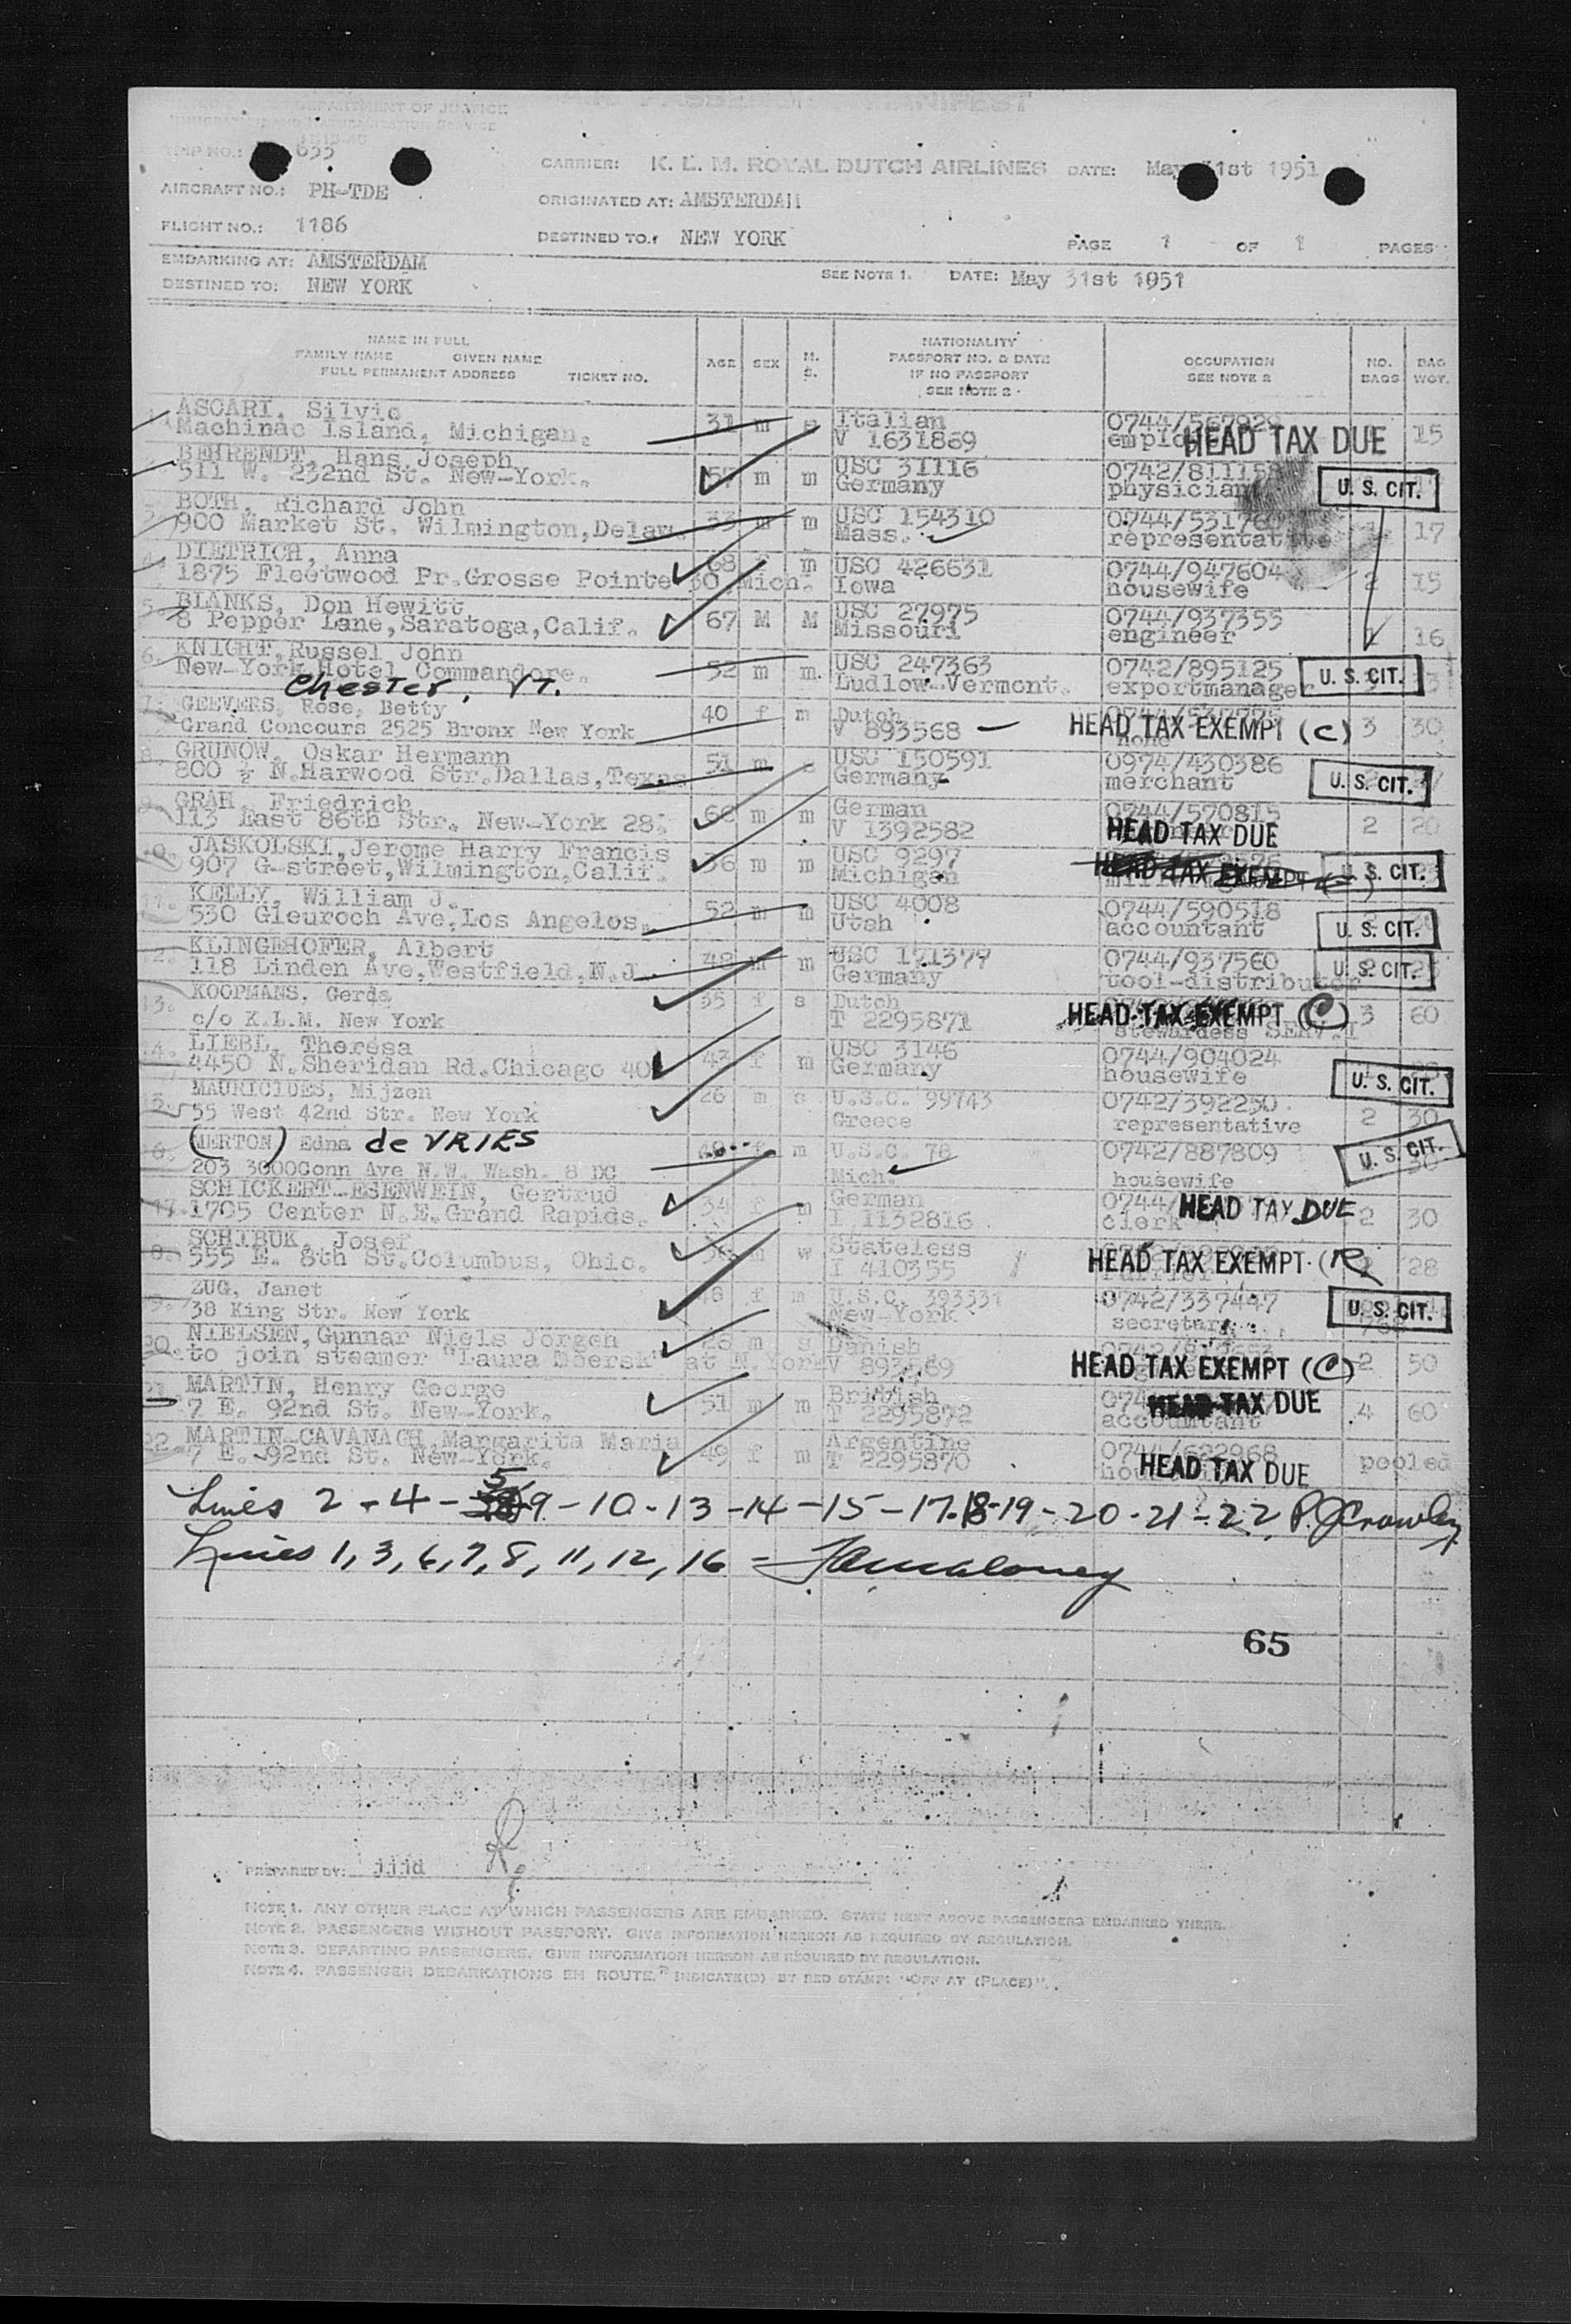 DEPARTMENT OF JUSTICE
TRIP NO.: 633
CARRIER: K. L. M. ROYAL DUTCH AIRLINES DATE: May 31st 1951
AIRCRAFT NO.: PH-TDE
ORIGINATED AT: AMSTERDAM
FLIGHT NO.: 1186
DESTINED TO: NEW YORK
PAGE 1 OF 1 PAGES
EMBARKING AT: AMSTERDAM
SEE NOTE 1. DATE: May 31st 1951
DESTINED TO: NEW YORK
NAME IN FULL
FAMILY NAME GIVEN NAME
FULL PERMANENT ADDRESS TICKET NO.
AGE SEX M. S.
NATIONALITY
PASSPORT NO. & DATE
IF NO PASSPORT
SEE NOTE 2
OCCUPATION
SEE NOTE 2
NO. BAGS
BAG WGT.
1. ASCARI, Silvio 31 m Italian
Machinac Island, Michigan. V 1631869 HEAD TAX DUE 15
BEHRENDT, Hans Joseph USC 31116
511 W. 232nd St. New-York. 57 m m Germany physician U. S. CIT.
3. BOTH, Richard John 33 m m USC 154310
900 Market St. Wilmington,Delaw. Mass. representative 17
4. DIETRICH, Anna 68 f m USC 426631 0744/947604
1875 Fleetwood Pr.Grosse Pointe 30 Mich. Iowa housewife 2 15
5. BLANKS, Don Hewitt 67 M M USC 27975 0744/937355
8 Pepper Lane,Saratoga,Calif. Missouri engineer 1 16
6. KNIGHT,Russel John 52 m m. USC 247363 0742/895125
New-York Hotel Commandore. Ludlow-Vermont. exportmanager U. S. CIT.
Chester, VT.
7. GEEVERS, Rose, Betty 40 f m Dutch
Grand Concours 2525 Bronx New York V 893568 — none HEAD TAX EXEMPT (C) 3 30
8. GRUNOW, Oskar Hermann 51 m s USC 150591 0974/430386
800 ½ N.Harwood Str.Dallas,Texas Germany merchant U. S. CIT.
9. GRAH, Friedrich 66 m m German 0744/570815
113 East 86th Str. New-York 28. V 1392582 HEAD TAX DUE 2 20
10. JASKOLSKI,Jerome Harry Francis 36 m m USC 9297
907 G-street,Wilmington,Calif. Michigan HEAD TAX EXEMPT U. S. CIT.
11. KELLY, William J. 52 m m USC 4008 0744/590518
530 Gleuroch Ave,Los Angelos. Utah accountant U. S. CIT.
12. KLINGEHOFER, Albert 48 m m USC 171379 0744/937560
118 Linden Ave,Westfield,N.J. Germany tool-distributor U. S. CIT.
13. KOOPMANS, Gerda 35 f s Dutch
c/o K.L.M. New York T 2295871 stewardess HEAD TAX EXEMPT (C) 3 60
14. LIEBL, Theresa 43 f m USC 3146 0744/904024
4450 N.Sheridan Rd.Chicago 40 Germany housewife U. S. CIT.
15. MAURICIDES, Mijzen 26 m s U.S.C. 99743 0742/392250
55 West 42nd Str. New York Greece representative 2 30
16. (MERTON) Edna de VRIES f m U.S.C. 78 0742/887809
203 3000Conn Ave N.W. Wash. 8 DC Mich. housewife U. S. CIT.
17. SCHICKERT-ESENWEIN, Gertrud 34 f m German 0744/
1705 Center N.E.Grand Rapids. I 1132816 clerk HEAD TAX DUE 2 30
18. SCHIBUK, Josef w Stateless
555 E. 8th St.Columbus, Ohio. I 410355 HEAD TAX EXEMPT (R) 28
19. ZUG, Janet 48 f m U.S.C. 393531 0742/337447
38 King Str. New York New-York secretary U. S. CIT.
20. NIELSEN,Gunnar Niels Jorgen 26 m s Danish
to join steamer "Laura Moersk" at N.York V 893569 HEAD TAX EXEMPT (C) 2 50
21. MARTIN, Henry George 51 m m British
7 E. 92nd St. New-York. T 2295872 accountant HEAD TAX DUE 4 60
22. MARTIN-CAVANAGH,Margarita Maria 49 f m Argentine 0744/622968
7 E. 92nd St. New-York. T 2295870 HEAD TAX DUE pooled
Lines 2-4-5 9-10-13-14-15-17-18-19-20-21-22 P.J.Crowley
Lines 1,3,6,7,8,11,12,16 = Maloney
65
PREPARED BY: jjjd
NOTE 1. ANY OTHER PLACE AT WHICH PASSENGERS ARE EMBARKED. STATE NEXT ABOVE PASSENGERS EMBARKED THERE.
NOTE 2. PASSENGERS WITHOUT PASSPORT. GIVE INFORMATION HEREON AS REQUIRED BY REGULATION.
NOTE 3. DEPARTING PASSENGERS. GIVE INFORMATION HEREON AS REQUIRED BY REGULATION.
NOTE 4. PASSENGER DEBARKATIONS EN ROUTE. INDICATE(D) BY RED STAMP: "OFF AT (PLACE)".